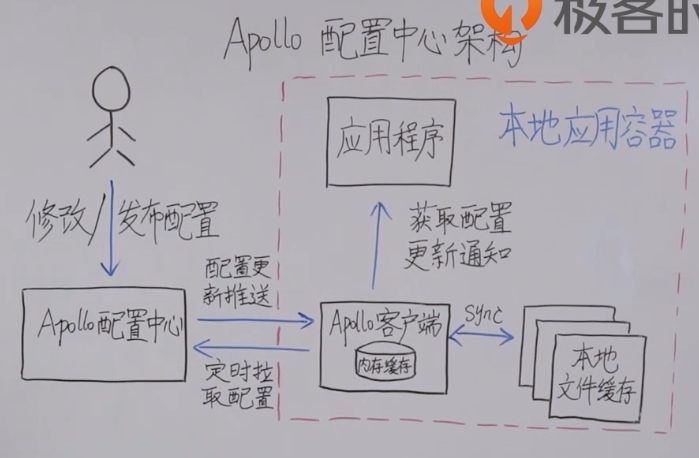 极客时
Apollo 配置中心架构
本地应用容器
应用程序
修改/发布配置
获取配置
更新通知
配置更
新推送
Apollo配置中心
Apollo客户端
内存缓存
sync
本地
文件缓存
定时拉
取配置